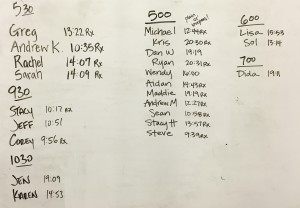 530
Greg 13:22 Rx
Andrew K. 10:35 Rx
Rachel 14:07 Rx
Sarah 14:09 Rx
930
STACY 10:17 Rx
JEFF 10:51
COREY 9:56 Rx
1030
JEN 14:09
KAREN 14:53
500
Michael 12:44 Rx
Kris 20:30 Rx
Dan W 19:19
Ryan 20:31 Rx
Wendy
Aidan 14:43 Rx
Maddie 19:19 Rx
Andrew M 12:27 Rx
Sean 10:58 Rx
Stacy H 13:57 Rx
Steve 9:39 Rx
600
Lisa 15:53
Sol 13:14
700
Dida